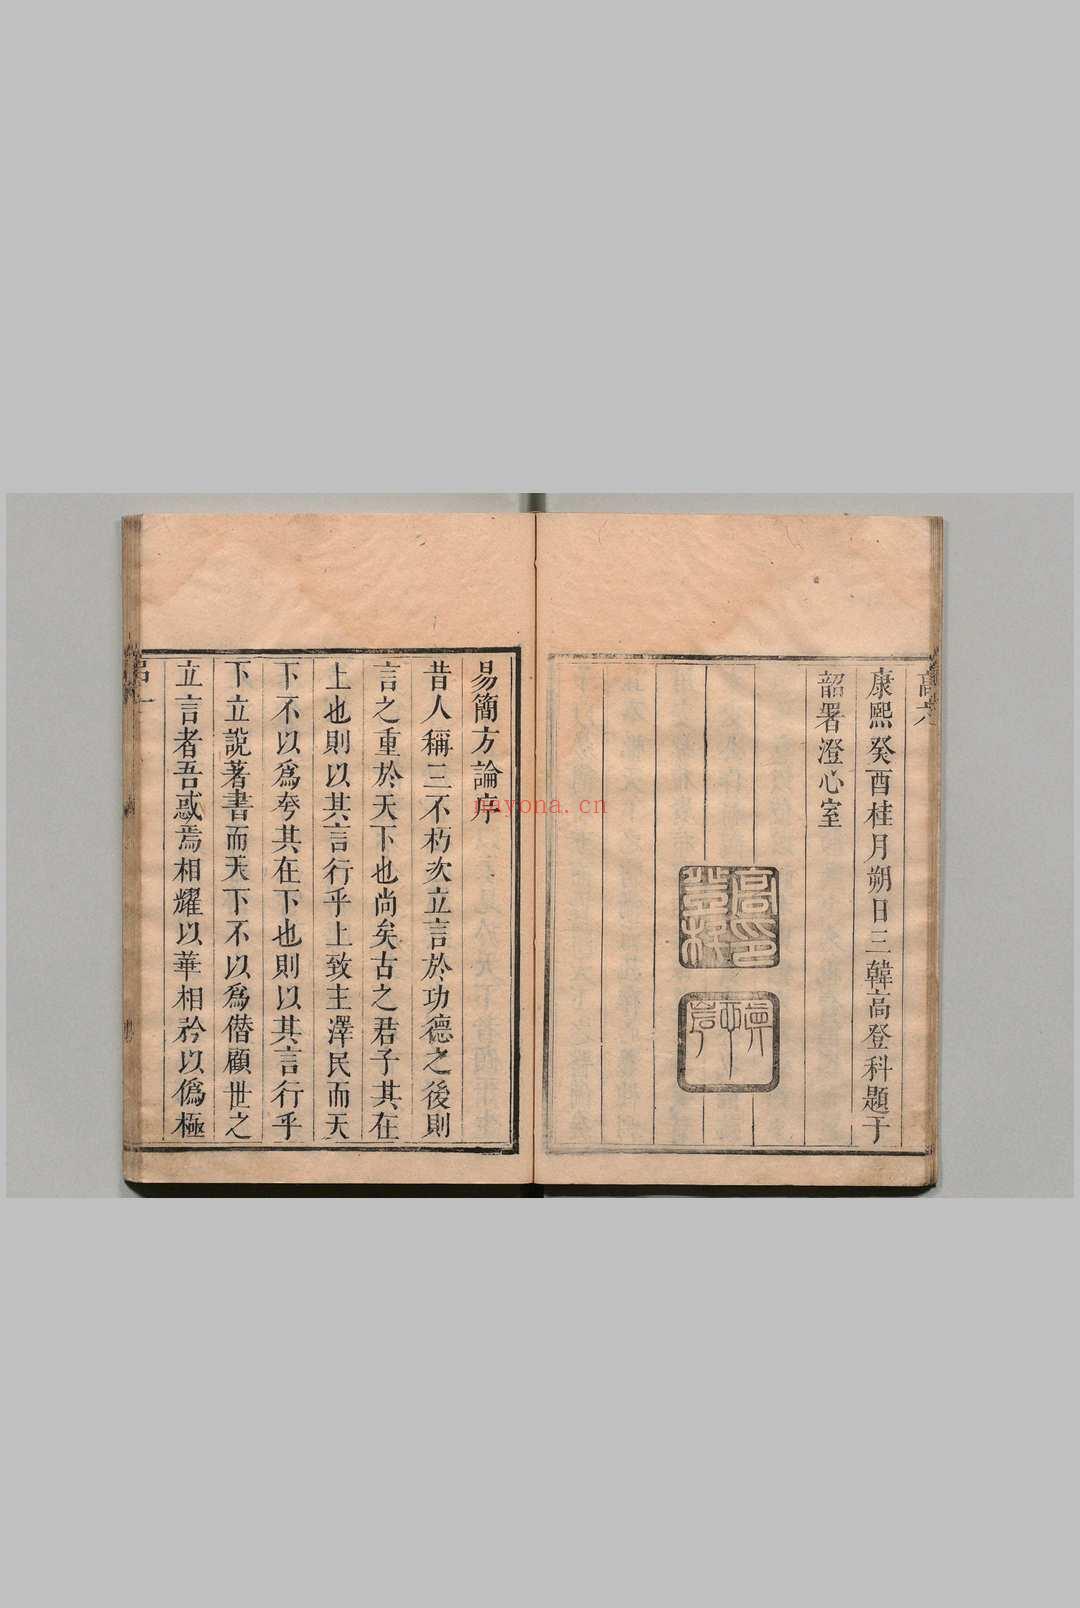 高六
康熙癸酉桂月朔日三韓高登科題于
韶署澄心室
高登科印
易簡方論序
昔人稱三不朽次立言於功德之後則
言之重於天下也尚矣古之君子其在
上也則以其言行乎上致主澤民而天
下不以爲夸其在下也則以其言行乎
下立說著書而天下不以爲僣顧世之
立言者吾惑焉相耀以華相矜以僞極
nayona.cn